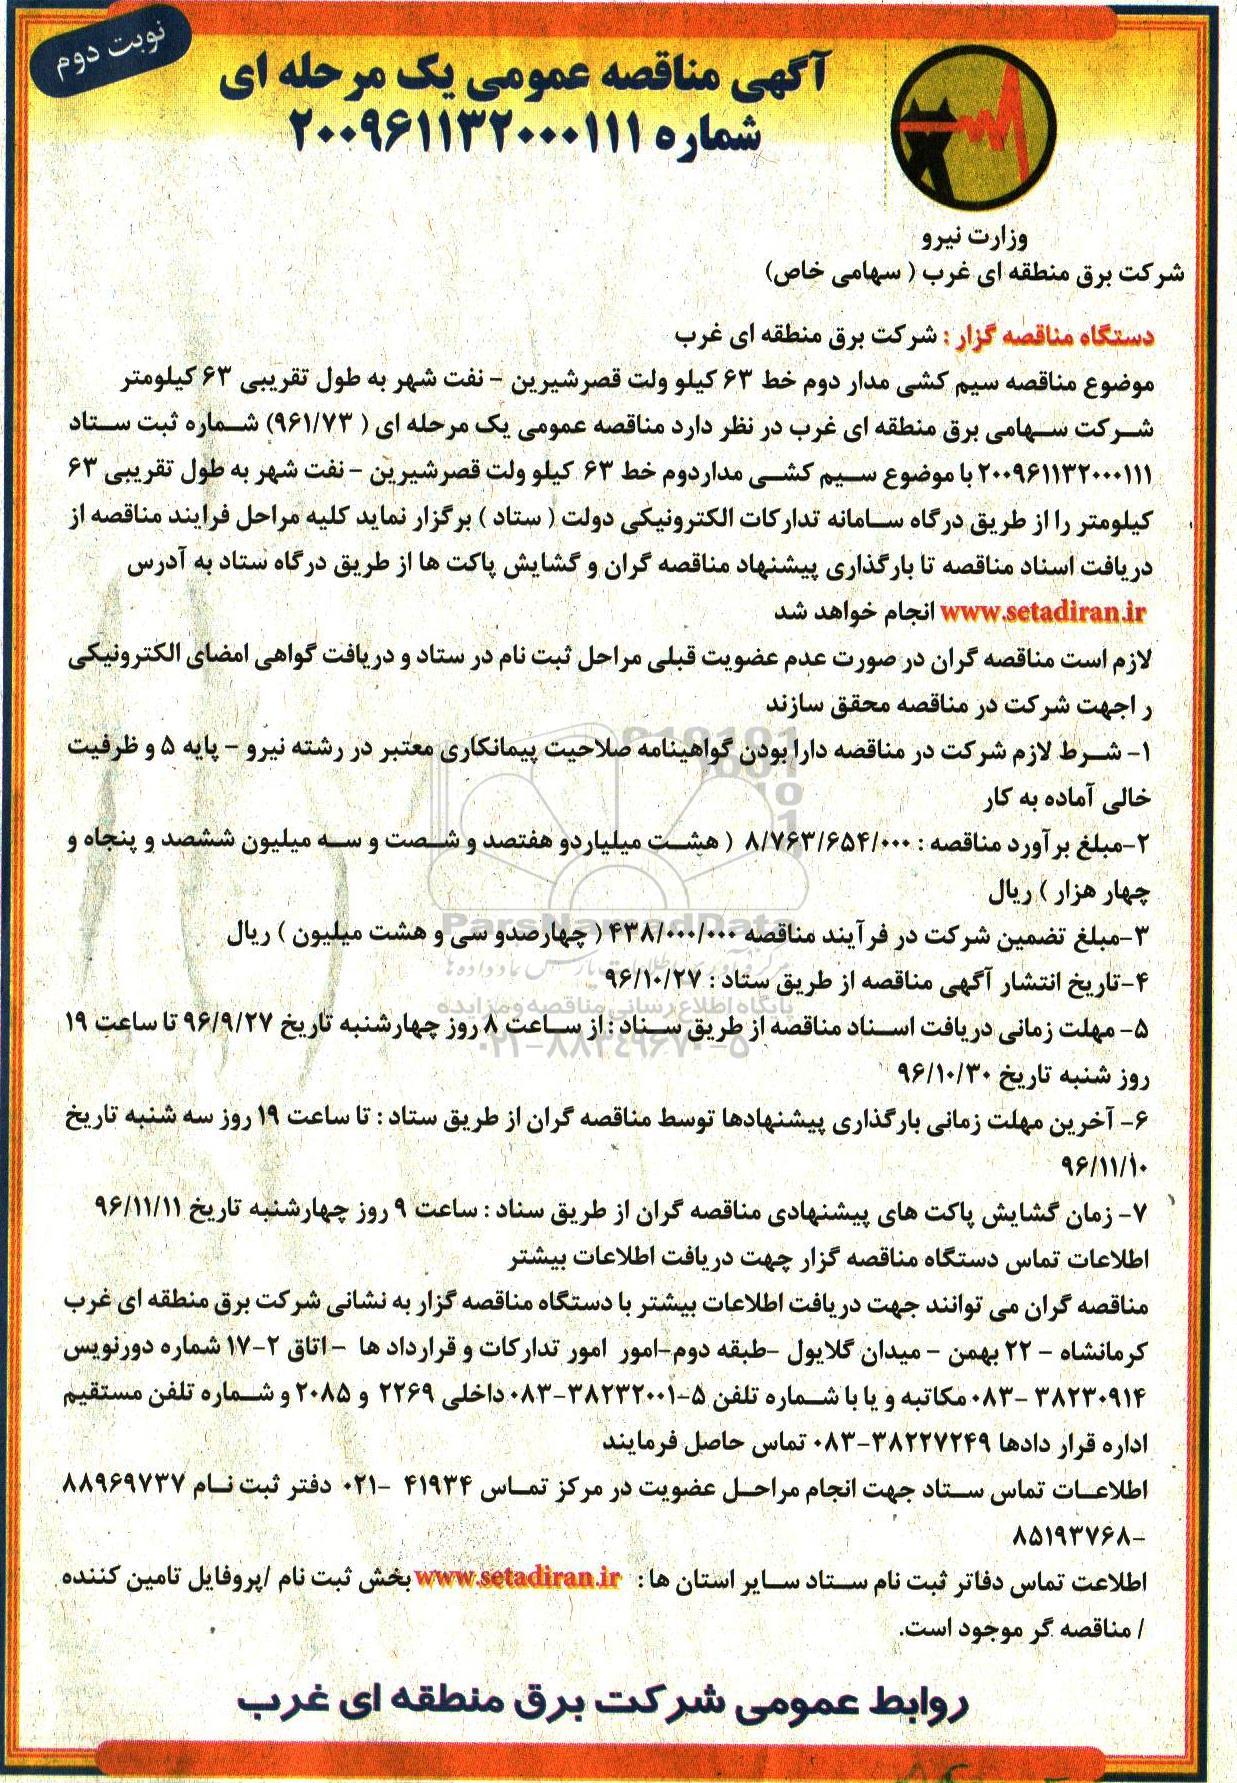 نوبت دوم
آگهی مناقصه عمومی یک مرحله ای
شماره ۲۰۰۹۶۱۱۳۲۰۰۰۱۱۱
وزارت نیرو
شرکت برق منطقه ای غرب ( سهامی خاص)
دستگاه مناقصه گزار : شرکت برق منطقه ای غرب
موضوع مناقصه سیم کشی مدار دوم خط ۶۳ کیلو ولت قصرشیرین - نفت شهر به طول تقریبی ۶۳ کیلومتر
شرکت سهامی برق منطقه ای غرب در نظر دارد مناقصه عمومی یک مرحله ای ( ۹۶۱/۷۳) شماره ثبت ستاد
۲۰۰۹۶۱۱۳۲۰۰۰۱۱۱ با موضوع سیم کشی مداردوم خط ۶۳ کیلو ولت قصرشیرین - نفت شهر به طول تقریبی ۶۳
کیلومتر را از طریق درگاه سامانه تدارکات الکترونیکی دولت ( ستاد ) برگزار نماید کلیه مراحل فرایند مناقصه از
دریافت اسناد مناقصه تا بارگذاری پیشنهاد مناقصه گران و گشایش پاکت ها از طریق درگاه ستاد به آدرس
www.setadiran.ir انجام خواهد شد
لازم است مناقصه گران در صورت عدم عضویت قبلی مراحل ثبت نام در ستاد و دریافت گواهی امضای الکترونیکی
ر اجهت شرکت در مناقصه محقق سازند
۱- شرط لازم شرکت در مناقصه دارا بودن گواهینامه صلاحیت پیمانکاری معتبر در رشته نیرو - پایه ۵ و ظرفیت
خالی آماده به کار
۲-مبلغ برآورد مناقصه : ۸/۷۶۳/۶۵۴/۰۰۰ ( هشت میلیاردو هفتصد و شصت و سه میلیون ششصد و پنجاه و
چهار هزار ) ریال
ParsNamadData
۳-مبلغ تضمین شرکت در فرآیند مناقصه ۴۳۸/۰۰۰/۰۰۰ ( چهارصدو سی و هشت میلیون ) ریال
۴-تاریخ انتشار آگهی مناقصه از طریق ستاد : ۹۶/۱۰/۲۷
پایگاه اطلاع رسانی مناقصه و مزایده
۵- مهلت زمانی دریافت اسناد مناقصه از طریق سناد : از ساعت ۸ روز چهارشنبه تاریخ ۹۶/۹/۲۷ تا ساعت ۱۹
۰۲۱-۸۸۳۴۹۶۷۰-۵
روز شنبه تاریخ ۹۶/۱۰/۳۰
۶- آخرین مهلت زمانی بارگذاری پیشنهادها توسط مناقصه گران از طریق ستاد : تا ساعت ۱۹ روز سه شنبه تاریخ
۹۶/۱۱/۱۰
۷- زمان گشایش پاکت های پیشنهادی مناقصه گران از طریق سناد : ساعت ۹ روز چهارشنبه تاریخ ۹۶/۱۱/۱۱
اطلاعات تماس دستگاه مناقصه گزار جهت دریافت اطلاعات بیشتر
مناقصه گران می توانند جهت دریافت اطلاعات بیشتر با دستگاه مناقصه گزار به نشانی شرکت برق منطقه ای غرب
کرمانشاه - ۲۲ بهمن - میدان گلایول -طبقه دوم-امور امور تدارکات و قرارداد ها - اتاق ۲-۱۷ شماره دورنویس
۳۸۲۳۰۹۱۴ -۰۸۳ مکاتبه و یا با شماره تلفن ۵-۳۸۲۳۲۰۰۱-۰۸۳ داخلی ۲۲۶۹ و ۲۰۸۵ و شماره تلفن مستقیم
اداره قرار دادها ۳۸۲۲۷۲۴۹-۰۸۳ تماس حاصل فرمایند
اطلاعات تماس ستاد جهت انجام مراحل عضویت در مرکز تماس ۴۱۹۳۴ -۰۲۱ دفتر ثبت نام ۸۸۹۶۹۷۳۷
-۸۵۱۹۳۷۶۸
اطلاعت تماس دفاتر ثبت نام ستاد سایر استان ها : www.setadiran.ir بخش ثبت نام /پروفایل تامین کننده
/ مناقصه گر موجود است.
روابط عمومی شرکت برق منطقه ای غرب